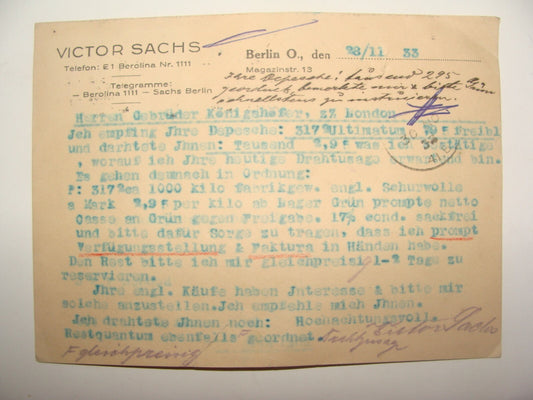 VICTOR SACHS
Telefon: E1 Berolina Nr. 1111
Telegramme:
— Berolina 1111 — Sachs Berlin
Berlin O., den 28/11 33
Magazinstr. 13
Ihre Depesche: tausend 295
geordnet, bemerkte mir & bitte
schnellstens zu instruieren.
Herren Gebrüder Königshofer, z3 London
Jch empfing Jhre Depesche: 3172 Ultimatum 295 freibl
und darhtete Jhnen: Tausend 2,95 was ich
, worauf ich Jhre heutige Drahtusage erwartend bin.
Es gehen demnach in Ordnung:
P: 3172 ca 1000 kilo fabrikgew. engl. Schurwolle
a Mark 2,95 per kilo ab Lager Grün prompte netto
Casse an Grün gegen Freigabe. 17% cond. sackfrei
und bitte dafür Sorge zu tragen, dass ich prompt
Verfügungsstellung & Faktura in Händen habe.
Den Rest bitte ich mir gleichpreisig 1-2 Tage zu
reservieren.
Jhre engl. Käufe haben Jnteresse & bitte mir
solche anzustellen. Jch empfehle mich Jhnen.
Jch drahtete Jhnen noch: Hochachtungsvoll.
Restquantum ebenfalls geordnet Victor Sachs
gleichpreisig